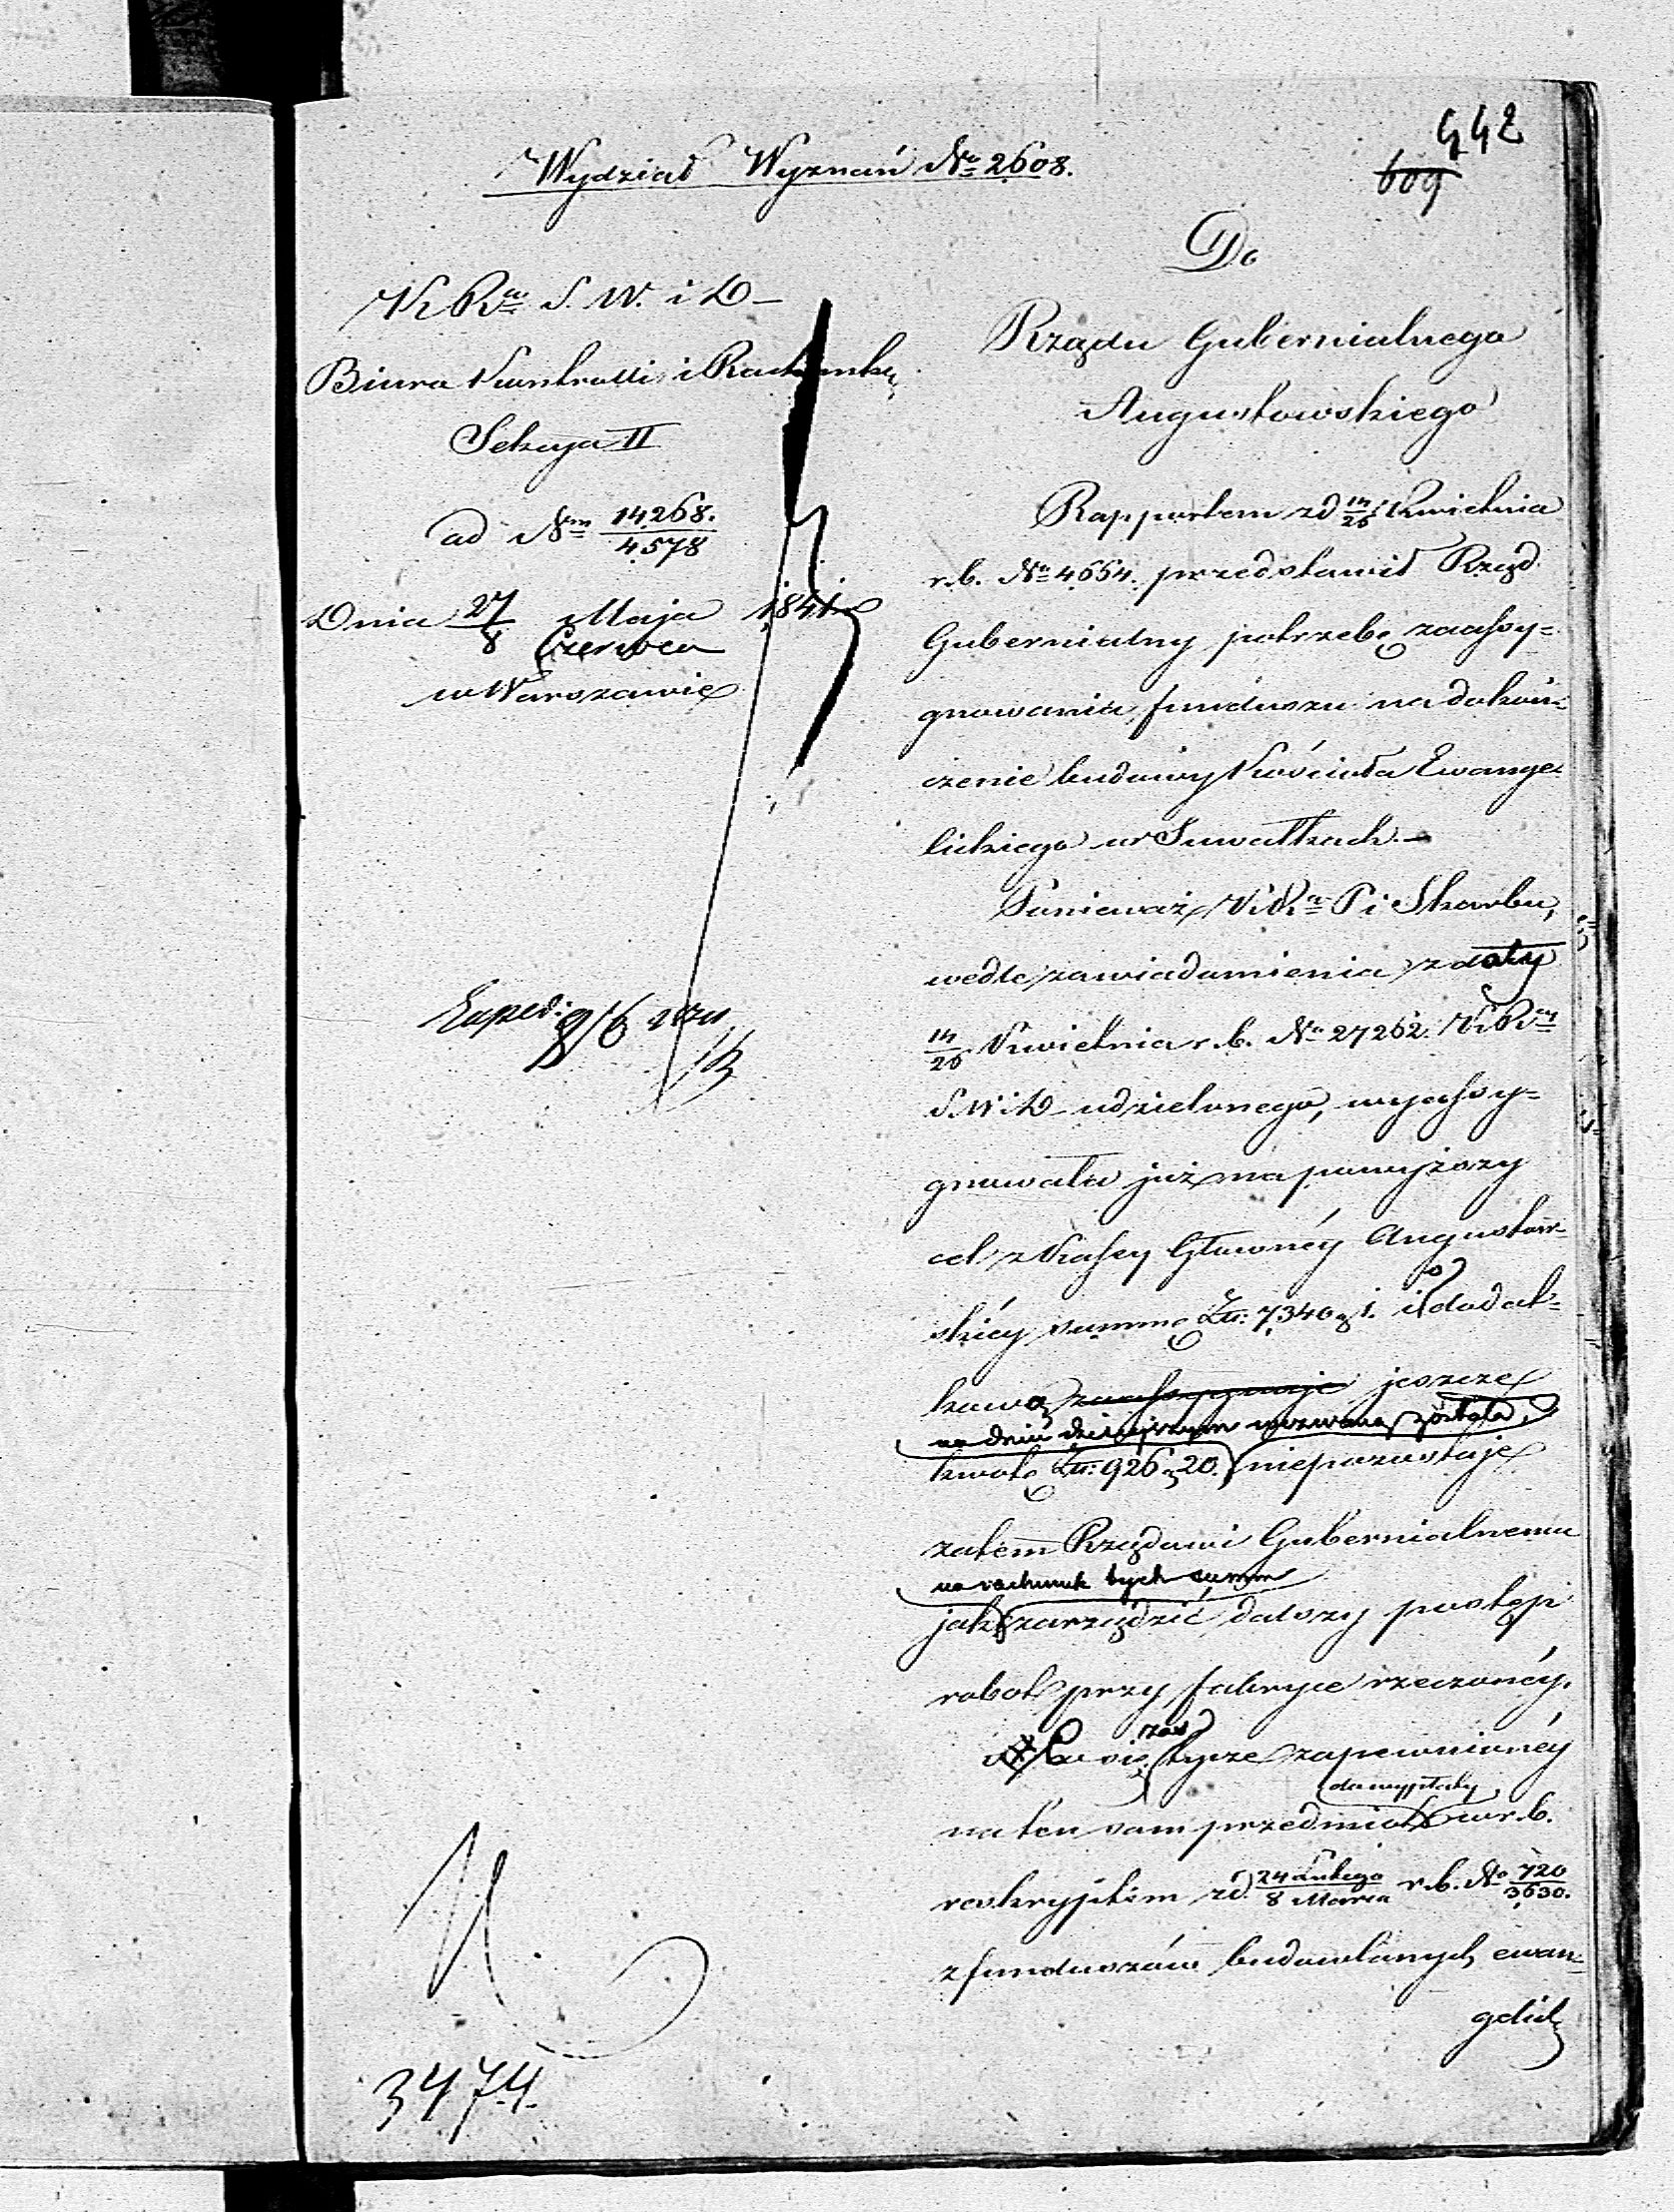 442
609
Wydział Wyznań No 2608.
K. Rn. S. W. i D.
Biuro Kontrolli i Rachunków
Sekcya II
ad Num 14268./4578
Dnia 27 Maja / 8 Czerwca 1841 r.
w Warszawie
Exped: 8/6
3474
Do
Rządu Gubernialnego
Augustowskiego
Rapportem z d. 14/26 Kwietnia
r. b. No 4654. przedstawił Rząd
Gubernialny potrzebę zaassy=
gnowania funduszu na dokoń=
czenie budowy Kościoła Ewange=
lickiego w Suwałkach. —
Ponieważ K. Ra P. i Skarbu,
wedle zawiadomienia z daty
14/26 Kwietnia r. b. No 27262. K. Rn.
S. W. i D. udzielonego, wyassy=
gnowała już na powyższy
cel z Kassy Główney Augustow=
skiéy summę Złt: 7340 g 1. i o dodat=
kową zaassygnuje jeszcze
na dniu dzisiejszym wezwaną została,
kwotę Złt: 926 g 20. nie pozostaje
zatem Rządowi Gubernialnemu
na rachunek tych summ
jak zarządzić dalszy postęp
robot przy fabryce rzeczonéy.
Co się zaś tycze zapewnionéy
do wypłaty
na ten sam przedmiot w r. b.
reskryptem z d. 24 Lutego / 8 Marca r. b. No 720/3630.
z funduszów budowlanych ewan=
gelick